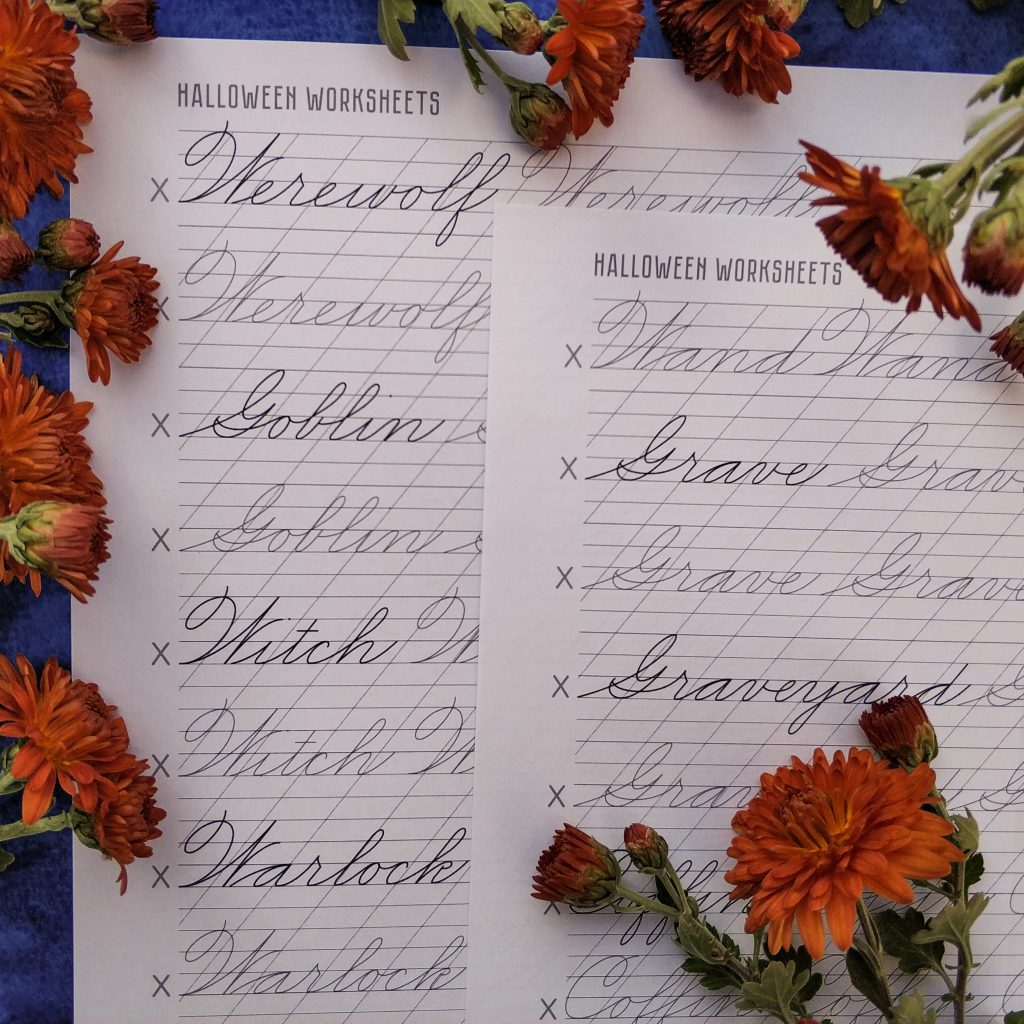 HALLOWEEN WORKSHEETS
X Werewolf Werewolf
X Werewolf
X Goblin
X Goblin
X Witch W
X Witch W
X Warlock
X Warlock
HALLOWEEN WORKSHEETS
X Wand Wand
X Grave Grave
X Grave Grave
X Graveyard G
X Gra
X Coffin
X Coffin Coffin